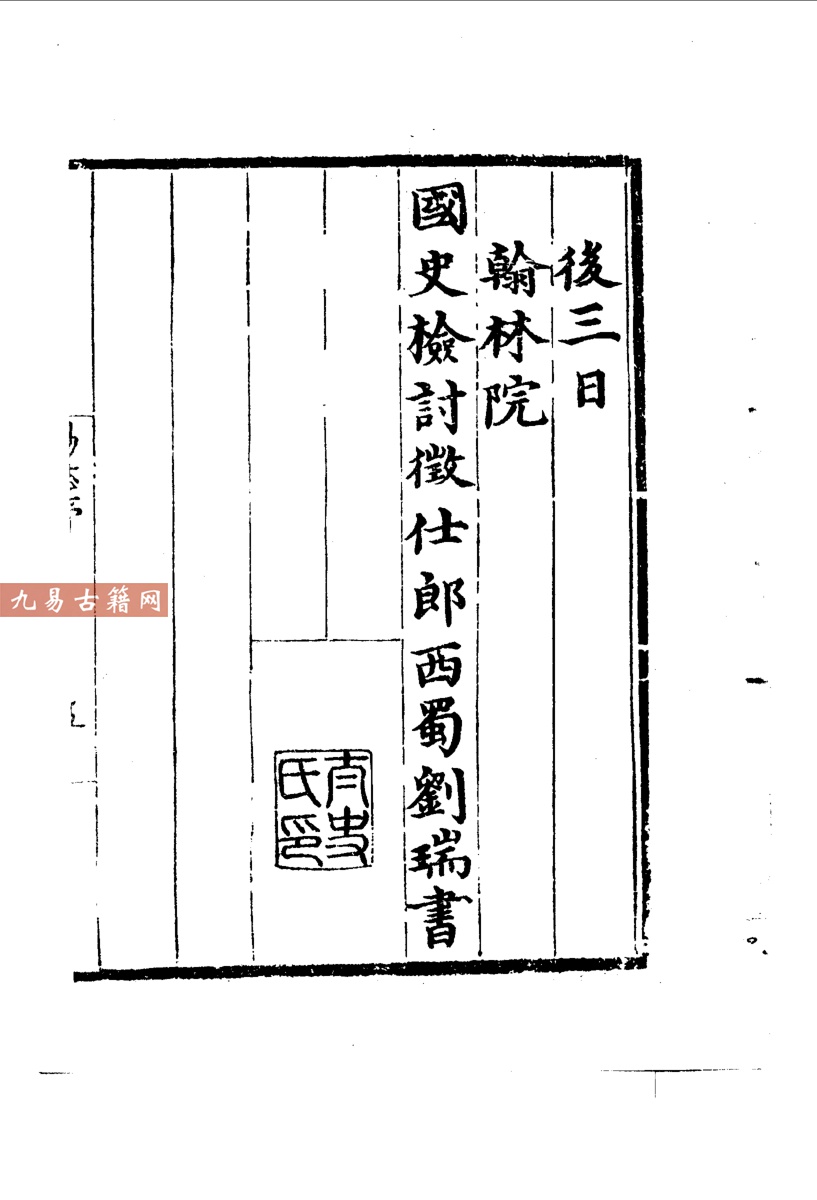 後三日
翰林院
國史檢討徵仕郎西蜀劉瑞書
太史
氏印
九易古籍网